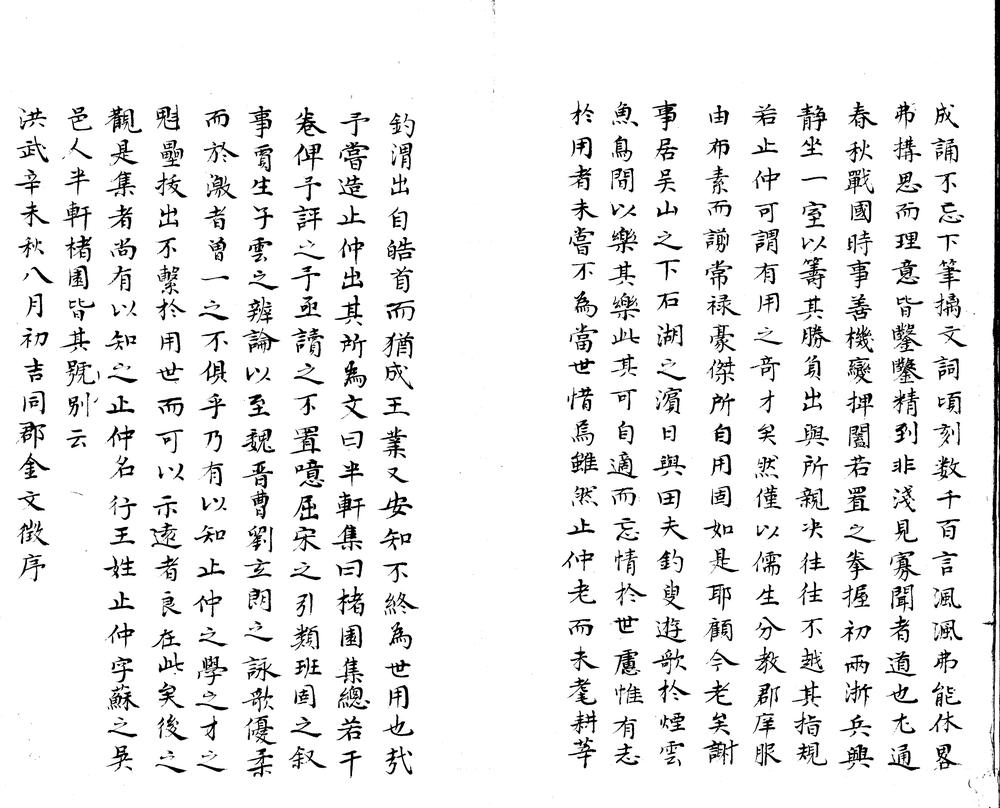 成誦不忘下筆摛文詞頃刻数千百言渢渢弗能休畧
弗搆思而理意皆鑿鑿精到非淺見寡聞者道也尤通
春秋戰國時事善機變捭闔若置之拳握初兩浙兵興
静坐一室以籌其勝負出與所親决往往不越其指規
若止仲可謂有用之竒才矣然僅以儒生分教郡庠服
由布素而謝常禄豪傑所自用固如是耶顧今老矣謝
事居吴山之下石湖之濵日與田夫釣叟遊歌於煙雲
魚鳥間以樂其樂此其可自適而忘情於世慮惟有志
於用者未嘗不為當世惜焉雖然止仲老而未耄耕莘
釣渭出自皓首而猶成王業又安知不終為世用也㢤
予嘗造止仲出其所為文曰半軒集曰楮園集總若干
卷俾予評之予亟讀之不置噫屈宋之引類班固之叙
事賈生子雲之辨論以至魏晋曹劉玄朗之詠歌優柔
而於激者曽一之不俱乎乃有以知止仲之學之才之
魁壘拔出不繫於用世而可以示逺者良在此矣後之
觀是集者尚有以知之止仲名行王姓止仲字蘇之吴
邑人半軒楮園皆其號别云
洪武辛未秋八月初吉同郡金文徴序